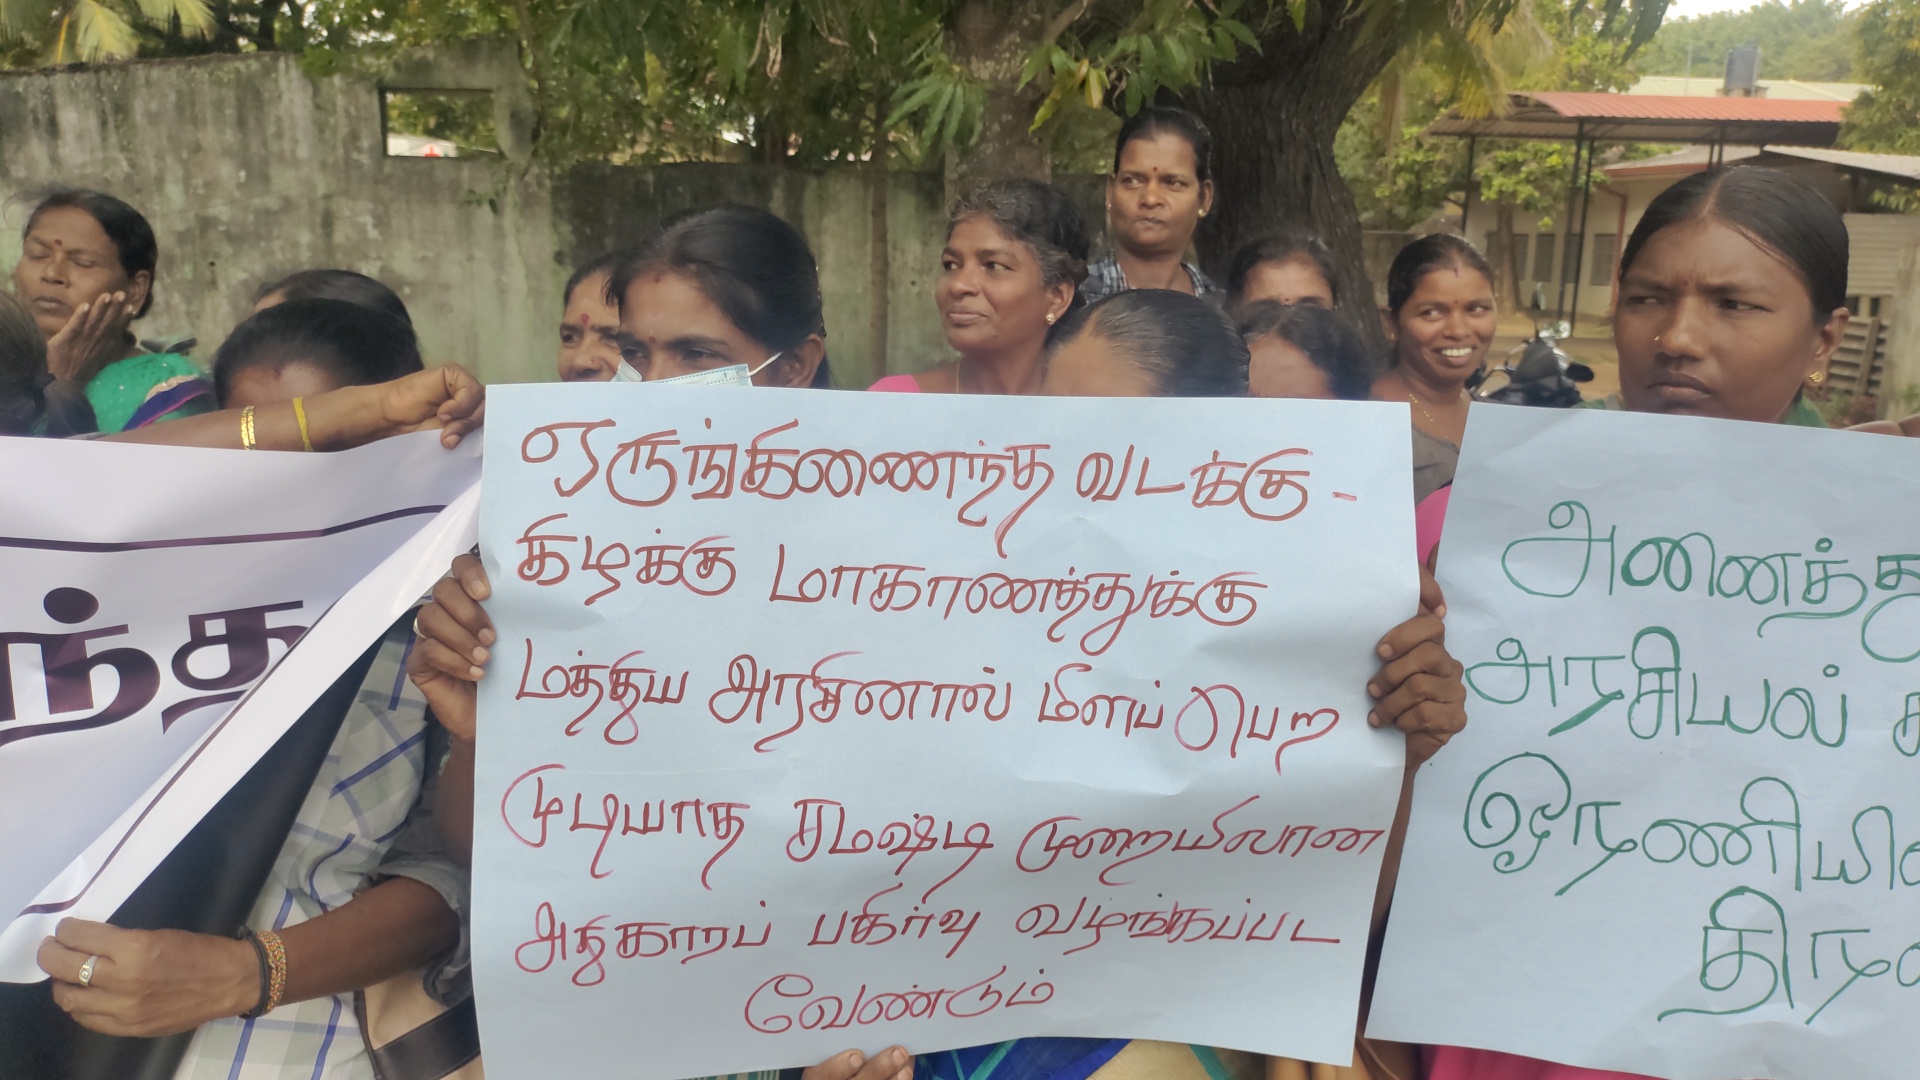 ந்த
ஒருங்கிணைந்த வடக்கு -
கிழக்கு மாகாணத்துக்கு
மத்திய அரசினால் மீளப் பெற
முடியாத சமஷ்டி முறையிலான
அதிகாரப் பகிர்வு வழங்கப்பட
வேண்டும்
அனைத்து
அரசியல்
ஓரணியில்
திரள